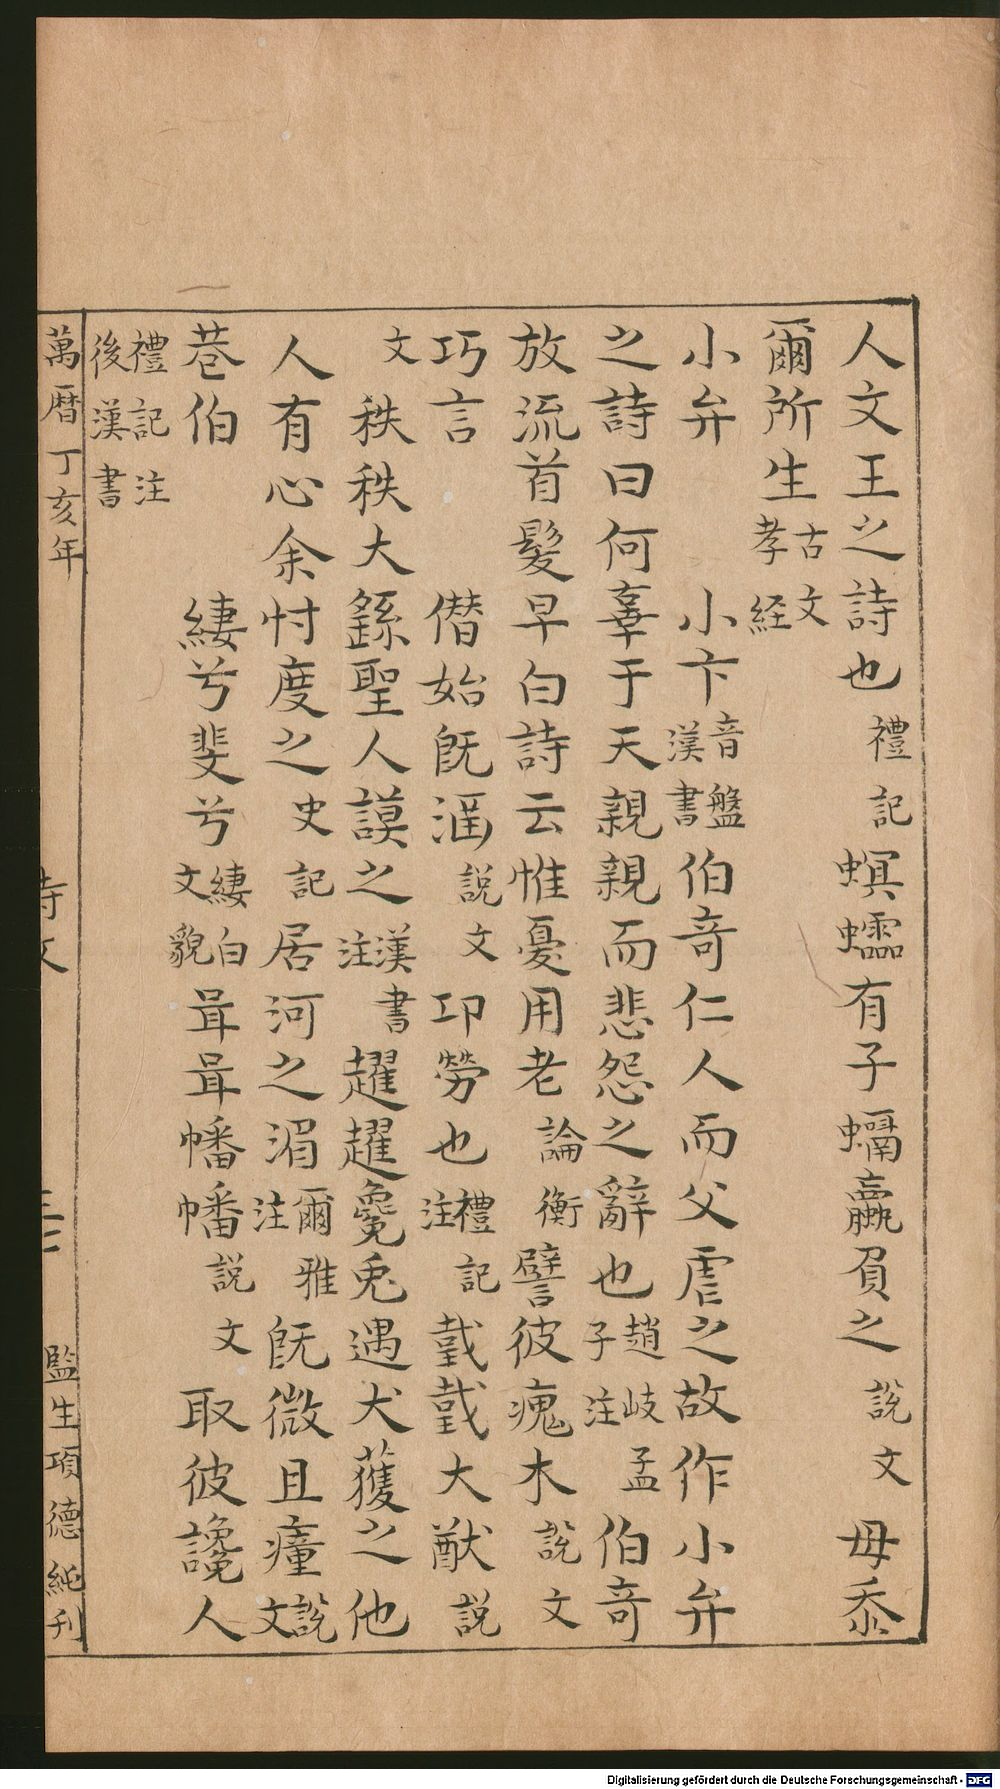 人文王之詩也禮記螟蠕有子蠣蠃負之說文毋忝
爾所生古文孝経
小弁　小卞音盤漢書伯奇仁人而父虐之故作小弁
之詩曰何辜于天親親而悲怨之辭也趙岐孟子注伯奇
放流首髮早白詩云惟憂用老論衡譬彼瘣木說文
巧言　僭始旣涵說文卭勞也禮記注戴戴大猷説
文秩秩大繇聖人謨之漢書注趯趯毚兎遇犬獲之他
人有心余忖度之史記居河之湄爾雅注旣微且瘇說文
巷伯　緀兮斐兮緀白文貌咠咠幡幡説文取彼讒人
禮記注後漢書
萬曆丁亥年　詩文　監生項德純刊
Digitalisierung gefördert durch die Deutsche Forschungsgemeinschaft - DFG